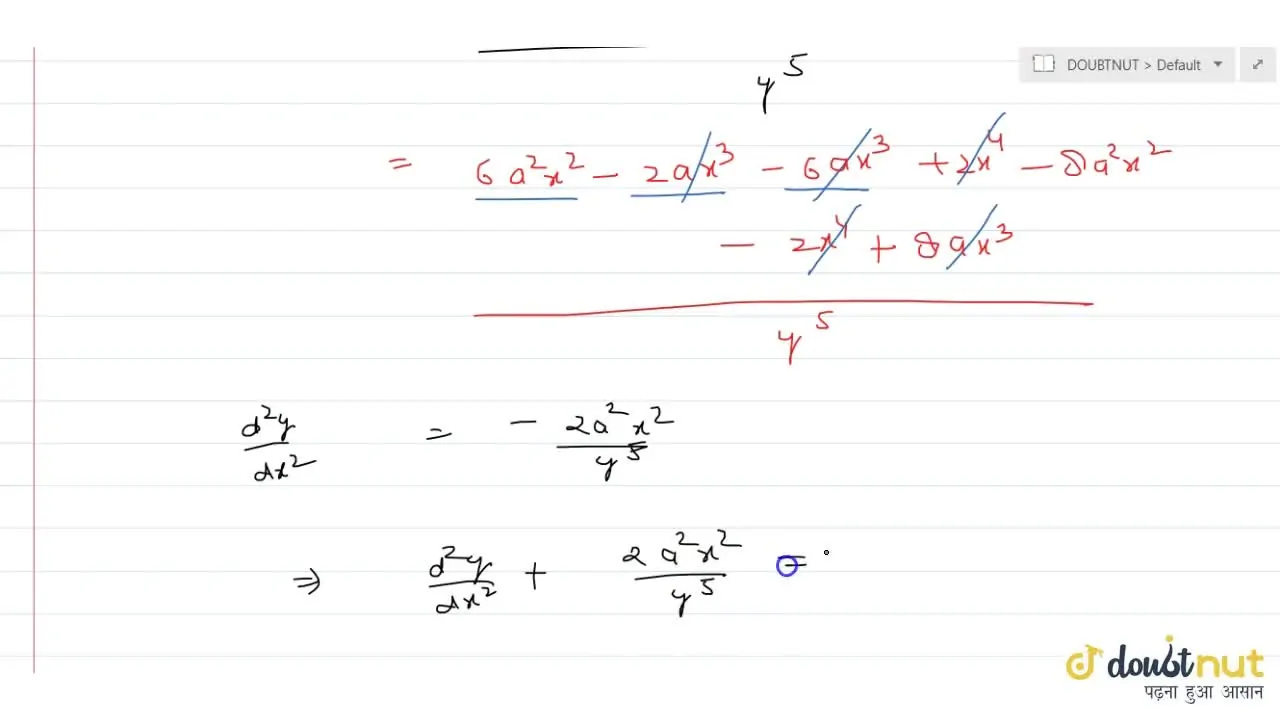 DOUBTNUT > Default
y^5
= 6a²x² - 2ax³ - 6ax³ + 2x⁴ - 8a²x²
- 2x⁴ + 8ax³
y^5
d²y/dx² = - 2a²x²/y^5
⇒ d²y/dx² + 2a²x²/y^5 =
doubtnut
पढ़ना हुआ आसान